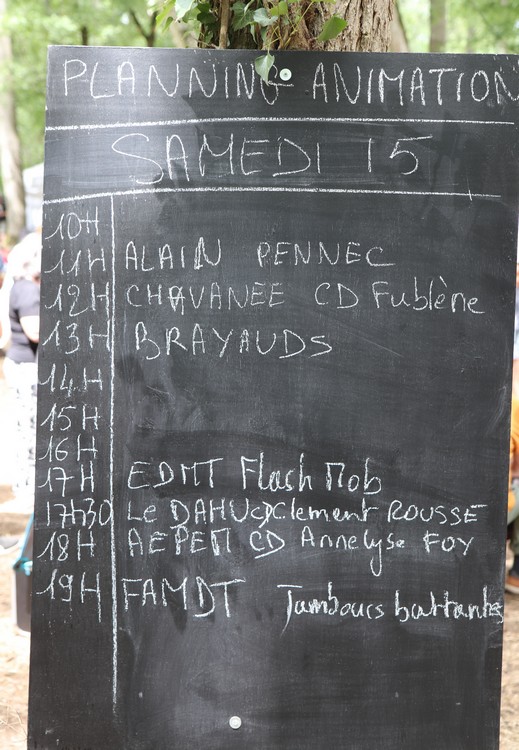 PLANNING ANIMATION
SAMEDI 15
10H
11H ALAIN PENNEC
12H CHAVANEE CD Fublène
13H BRAYAUDS
14H
15H
16H
17H EDMT Flach Mob
17H30 Le DAHU CD Clement ROUSSE
18H AEPEM CD Annelyse FOY
19H FAMDT Tambours battants